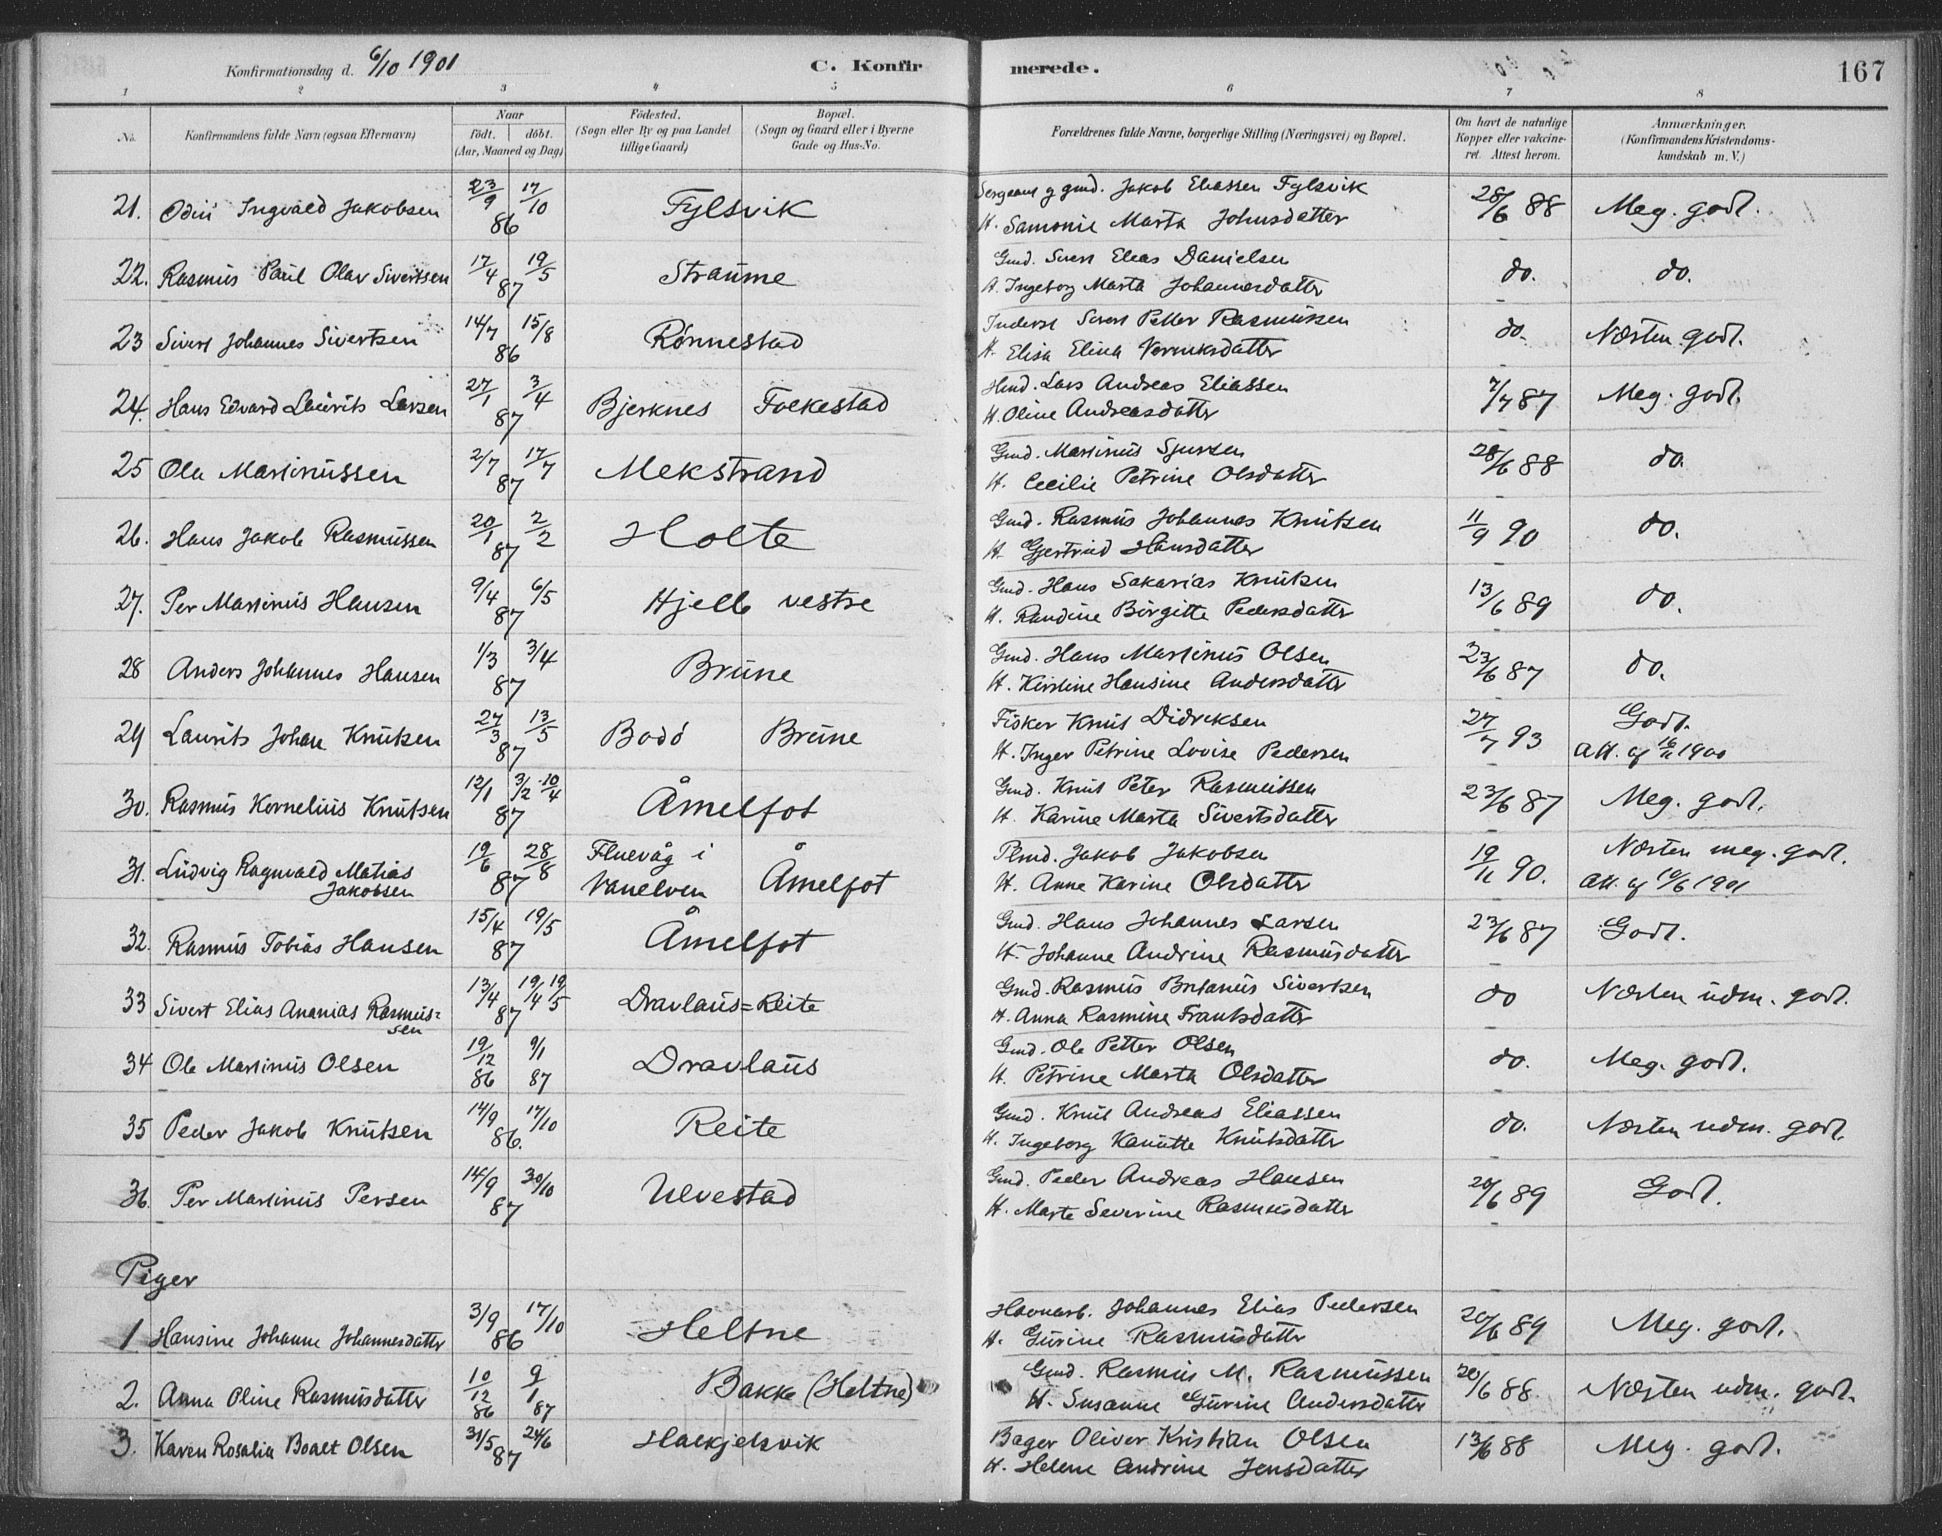 Konfirmationsdag d. 6/10 1901
C. Konfirmerede.
167
1 2 3 4 5 6 7 8
No. Konfirmandens fulde Navn (ogsaa Efternavn) Naar født. døbt. (Aar, Maaned og Dag) Fødested. (Sogn eller By og paa Landet tillige Gaard) Bopæl. (Sogn og Gaard eller i Byerne Gade og Hus-No. Forældrenes fulde Navne, borgerlige Stilling (Næringsvei) og Bopæl. Om havt de naturlige Kopper eller vakcineret. Attest herom. Anmærkninger. (Konfirmandens Kristendomskundskab m. V.)
21. Odin Ingvald Jakobsen 23/9 86 17/10 Fylsvik Sergeant g gmd. Jakob Eliassen Fylsvik 28/6 88 Meg. godt.
H. Samonie Marta Johnsdatter
22. Rasmus Paul Olav Sivertsen 17/4 87 19/5 Straume Gmd. Sivert Elias Danielsen do. do.
H. Ingeborg Marta Johannesdatter
23 Sivert Johannes Sivertsen 14/7 86 15/8 Rønnestad Inderst Sivert Petter Rasmussen do. Næsten godt.
H. Elisa Elina
24. Hans Edvard Laurits Larsen 27/1 87 3/4 Bjerknes Folkestad Hmd. Lars Andreas Eliassen 7/7 87 Meg. godt.
H. Oline Andreasdatter
25 Ole Martinussen 2/7 87 17/7 Mekstrand Gmd. Martinus Sjursen 28/6 88 do.
H. Cecilie Petrine Olsdatter
26. Hans Jakob Rasmussen 20/1 87 2/2 Holte Gmd. Rasmus Johannes Knutsen 11/9 90 do.
H. Gjertrud Hansdatter
27. Per Martinus Hansen 9/4 87 6/5 Hjelle vestre Gmd. Hans Sakarias Knutsen 13/6 89 do.
H. Randine Birgitte Pedersdatter
28 Anders Johannes Hansen 1/3 87 3/4 Brune Gmd. Hans Martinus Olsen 23/6 87 do.
H. Kirstine Hansine Andersdatter
29 Laurits Johan Knutsen 27/3 87 13/5 Bodø Brune Fisker Knut Didriksen 27/7 93 Godt.
H. Inger Petrine Lovise Pedersen Att. af 16/11 1900
30. Rasmus Kornelius Knutsen 12/1 87 3/2 10/4 Åmelfot Gmd. Knut Peter Rasmussen 23/6 87 Meg. godt.
H. Karine Marta Sivertsdatter
31. Ludvig Ragnvald Matias Jakobsen 19/6 87 28/8 Fluevåg i Vanelven Åmelfot Plmd. Jakob Jakobsen 19/11 90. Næsten meg. godt.
H. Anne Karine Olsdatter Att. af 10/6 1901
32. Rasmus Tobias Hansen 15/4 87 19/5 Åmelfot Gmd. Hans Johannes Larsen 23/6 87 Godt.
H. Johanne Andrine Rasmusdatter
33 Sivert Elias Ananias Rasmussen 13/4 87 19/4 19/5 Dravlaus=Reite Gmd. Rasmus Sivertsen do Næsten udm. godt.
H. Anna Rasmine Frantsdatter
34 Ole Martinus Olsen 19/12 86 9/1 87 Dravlaus Gmd. Ole Petter Olsen do. Meg. godt.
H. Petrine Marta Olsdatter
35 Peder Jakob Knutsen 14/9 86. 17/10 Reite Gmd. Knut Andreas Eliassen do. Næsten udm. godt.
H. Ingeborg Kanutte Knutsdatter
36. Per Martinus Persen 14/9 87 30/10 Ulvestad Gmd. Peder Andreas Hansen 20/6 89 Godt.
H. Marte Severine Rasmusdatter
Piger
1 Hansine Johanne Johannesdatter 3/9 86 17/10 Heltne Havnarb. Johannes Elias Pedersen 20/6 89 Meg. godt.
H. Gurine Rasmusdatter
2. Anna Oline Rasmusdatter 10/12 86 9/1 87 Bakke (Heltne) Gmd. Rasmus M. Rasmussen 20/6 88 Næsten udm. godt.
H. Susanne Gurine Andersdatter
3. Karen Rosalia Boalt Olsen 31/5 87 24/6 Halkjelsvik Bager Oliver Kristian Olsen 13/6 88 Meg. godt.
H. Helene Andrine Jensdatter